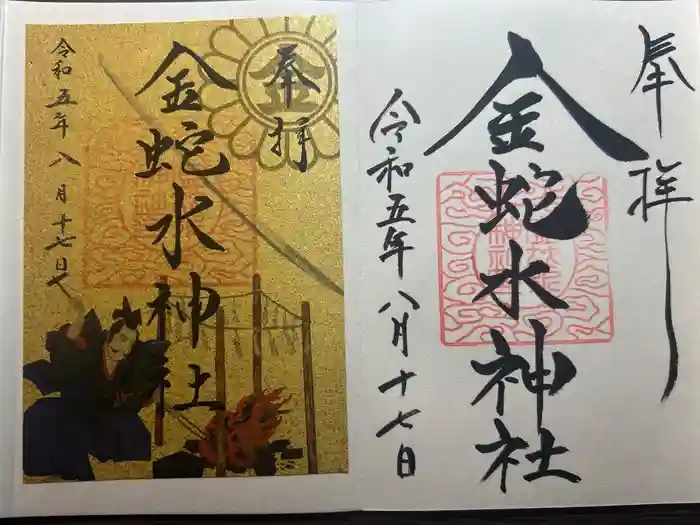 奉拝
金蛇水神社
令和五年八月十七日
奉拝
金蛇水神社
令和五年八月十七日
金